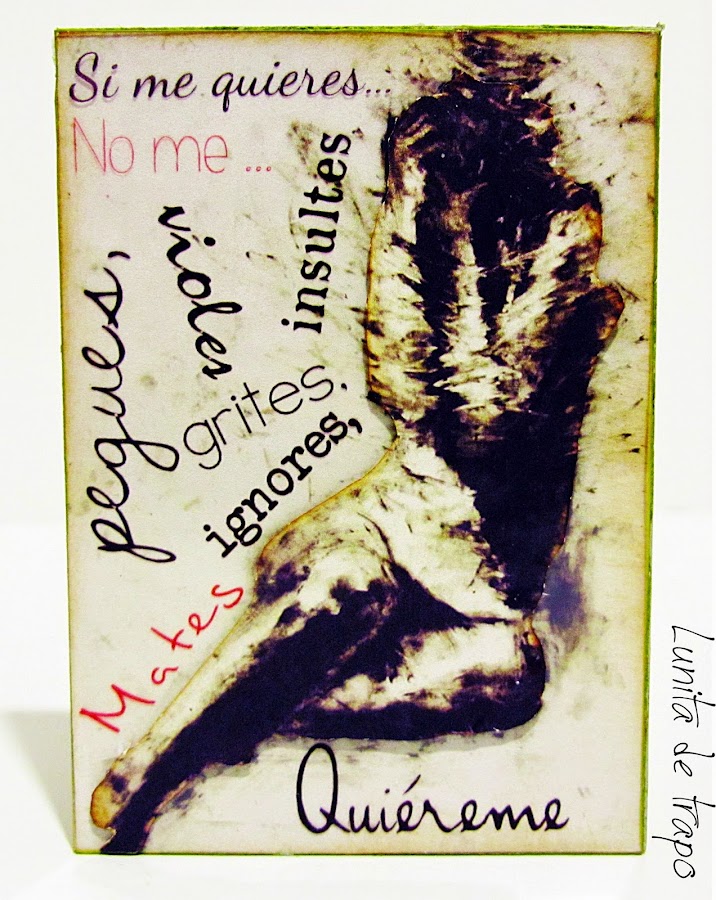 Si me quieres...
No me ...
pegues,
violes
insultes
grites,
ignores,
Mates
Quiéreme
Lunita de trapo